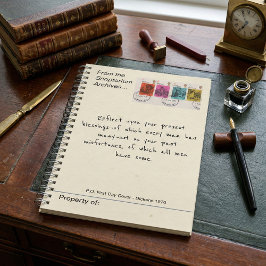 From the
Smaptorium
Archives...
Reflect upon your present
blessings of which every man has
many—not on your past
misfortunes, of which all men
have some.
P.O. First Day Cover - Dickens 1970
Property of: